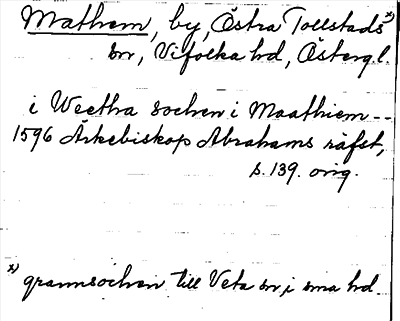 Mathem, by, Östra Tollstads x)
sn, Vifolka hd, Östergl.
i Weetha sochen i Maathiem --
1596 Ärkebiskop Abrahams räfst,
s. 139. orig.
x) grannsocken till Veta sn i sma hd.